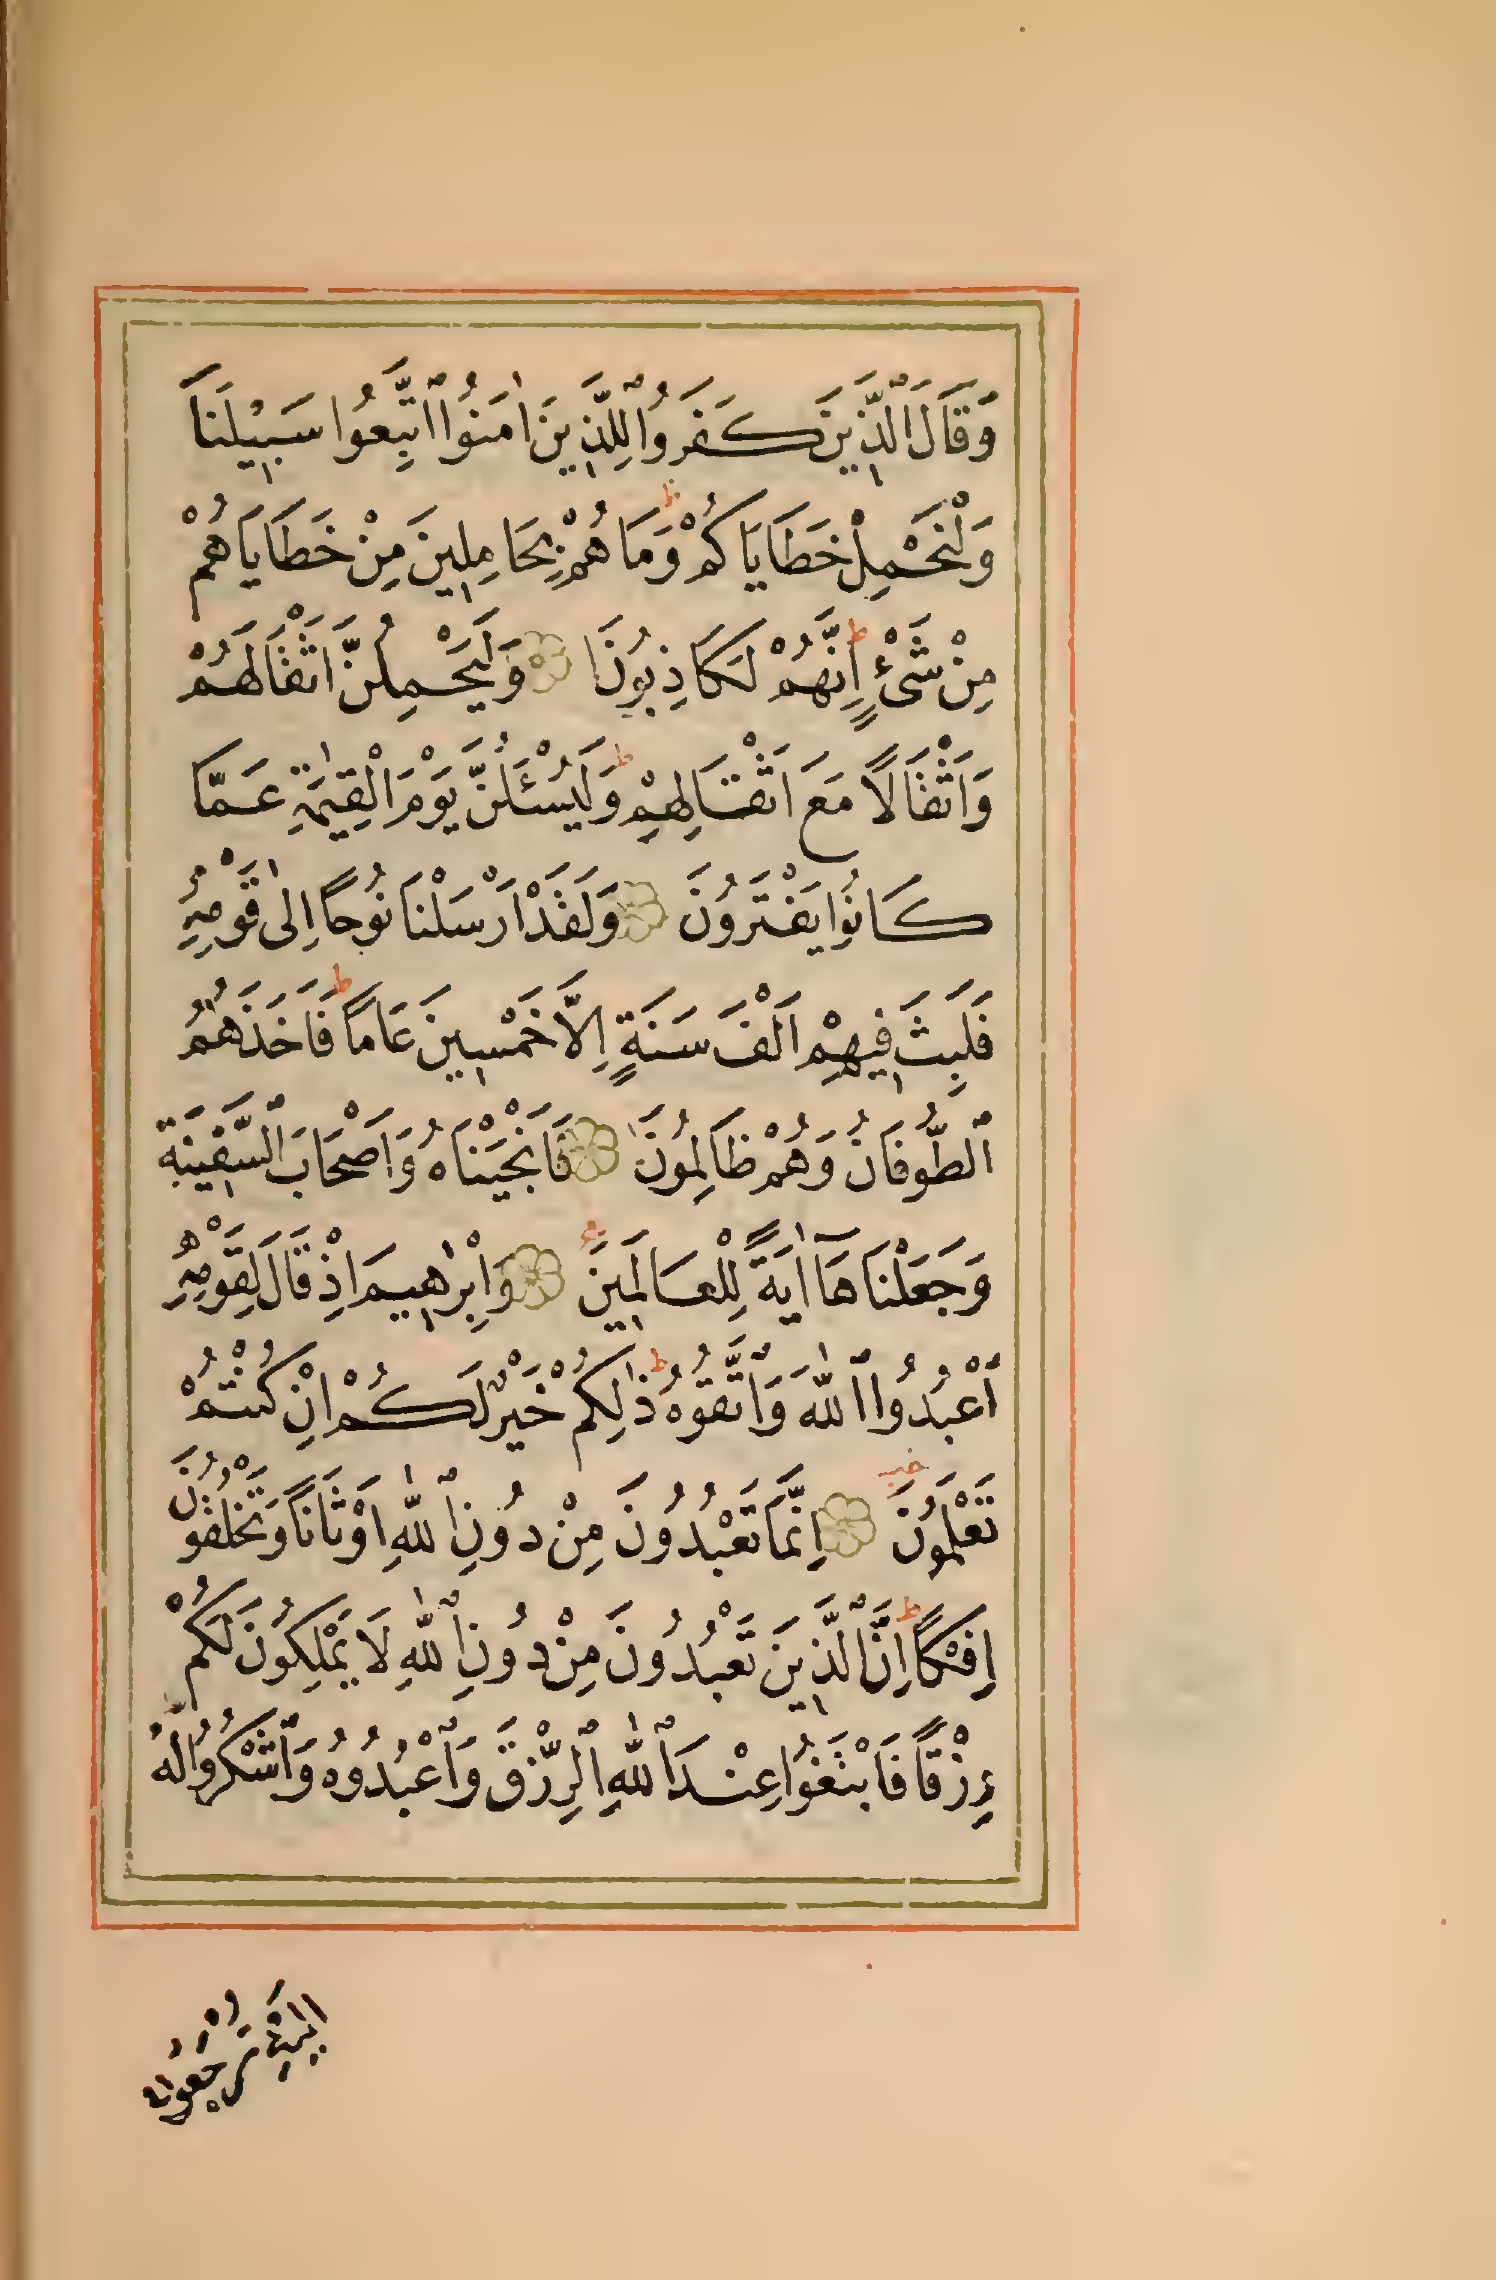 وَقَالَ ٱلَّذِينَ كَفَرُوا لِلَّذِينَ اٰمَنُوا ٱتَّبِعُوا سَبِيلَنَا
وَلْنَحْمِلْ خَطَايَاكُمْ ط وَمَا هُمْ بِحَامِلِينَ مِنْ خَطَايَاهُمْ
مِنْ شَىْءٍ ط اِنَّهُمْ لَكَاذِبُونَ وَلَيَحْمِلُنَّ اَثْقَالَهُمْ
وَاَثْقَالًا مَعَ اَثْقَالِهِمْ ط وَلَيُسْـَٔلُنَّ يَوْمَ الْقِيٰمَةِ عَمَّا
كَانُوا يَفْتَرُونَ وَلَقَدْ اَرْسَلْنَا نُوحًا اِلٰى قَوْمِهِ
فَلَبِثَ فِيهِمْ اَلْفَ سَنَةٍ اِلَّا خَمْسِينَ عَامًا ط فَاَخَذَهُمُ
ٱلطُّوفَانُ وَهُمْ ظَالِمُونَ فَاَنْجَيْنَاهُ وَاَصْحَابَ ٱلسَّفِينَةِ
وَجَعَلْنَاهَآ اٰيَةً لِلْعَالَمِينَ وَاِبْرٰهِيمَ اِذْ قَالَ لِقَوْمِهِ
ٱعْبُدُوا ٱللّٰهَ وَٱتَّقُوهُ ط ذٰلِكُمْ خَيْرٌ لَكُمْ اِنْ كُنْتُمْ
تَعْلَمُونَ اِنَّمَا تَعْبُدُونَ مِنْ دُونِ ٱللّٰهِ اَوْثَانًا وَتَخْلُقُونَ
اِفْكًا ط اِنَّ ٱلَّذِينَ تَعْبُدُونَ مِنْ دُونِ ٱللّٰهِ لَا يَمْلِكُونَ لَكُمْ
رِزْقًا فَٱبْتَغُوا عِنْدَ ٱللّٰهِ ٱلرِّزْقَ وَٱعْبُدُوهُ وَٱشْكُرُوا لَهُ
اِلَيْهِ تُرْجَعُونَ